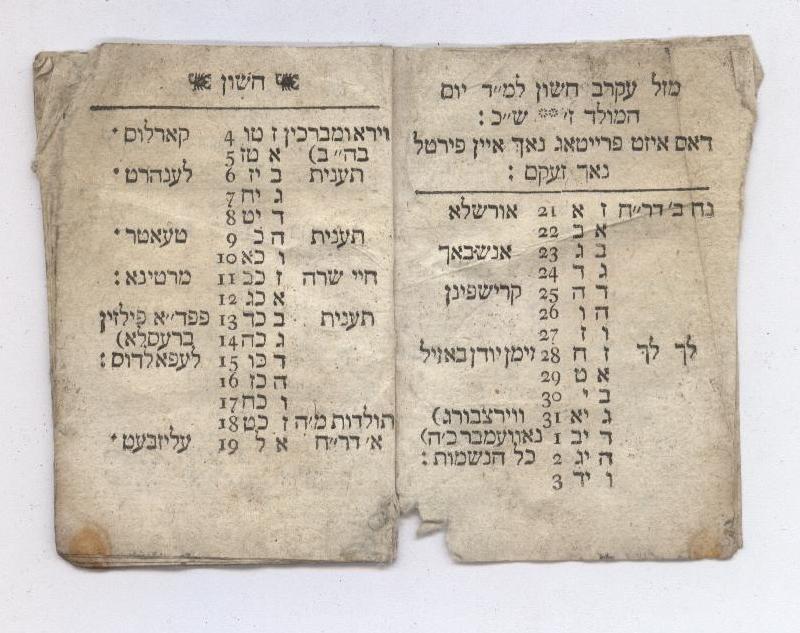 מזל עקרב חשון למ״ד יום
המולד ז׳ ש״כ :
דאס איזט פרייטאג נאך איין פירטל
נאך זעקס :
נח ב׳ דר״ח ז א 21 אורשלא
א ב 22
ב ג 23 אנשבאך
ג ד 24
ד ה 25 קרישפינן
ה ו 26
ו ז 27
לך לך ז ח 28 זימן יודן באזיל
א ט 29
ב י 30
ג יא 31 ווירצבורג)
ד יב 1 נאוועמבר כ״ה)
ה יג 2 כל הנשמות :
ו יד 3
חשון
וירא ומברכין ז טו 4 קארלוס
בה״ב) א טז 5
תענית ב יז 6 לענהרט
ג יח 7
ד יט 8
תענית ה כ 9 טעאטר
ו כא 10
חיי שרה ז כב 11 מרטינא :
א כג 12
תענית ב כד 13 פפד״א פילזין
ג כה 14 ברעסלא)
ד כו 15 לעפאלדוס :
ה כז 16
ו כח 17
תולדות מ״ה ז כט 18
א׳ דר״ח א ל 19 עליזבעט